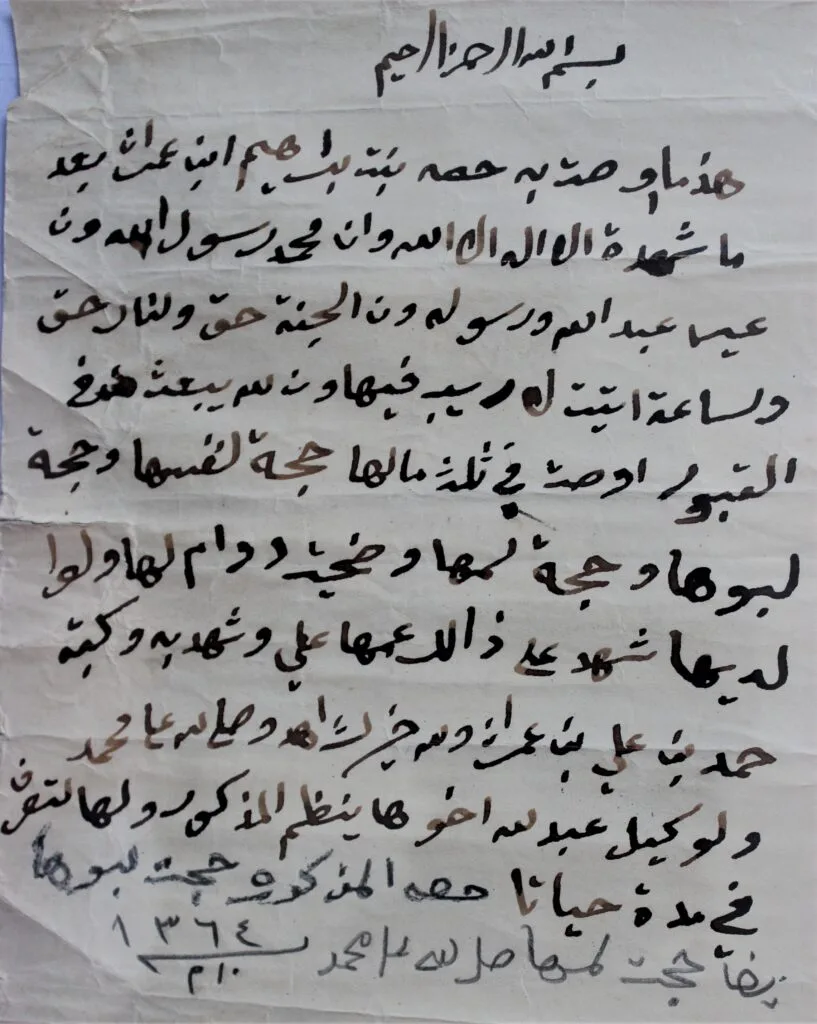 بسم الله الرحمن الرحيم
هذما اوصت به حصه بنت براهيم ابن عمران بعد
ما شهدة الا اله الا الله وان محمد رسول الله ون
عيسا عبد الله ورسوله ون الجنة حق ولنار حق
ولساعة اتيت لا ريب فيها ون لله يبعث من في
القبور اوصت في ثلث مالها حجة لنفسها وحجة
لبوها وحجة لمها وضحيت دوام لها ولوا
لديها شهد على ذالك عمها علي وشهد به وكتبه
حمد بن علي بن عمران وصلى لله على محمد
ولوكيل عبد لله اخوها ينظم المذكور ولها لتصرف
في مدة حياتا حصه المذكوره حجت لبوها
يضا حجت لمها صلى لله على محمد ١٣٦٤
١٠م